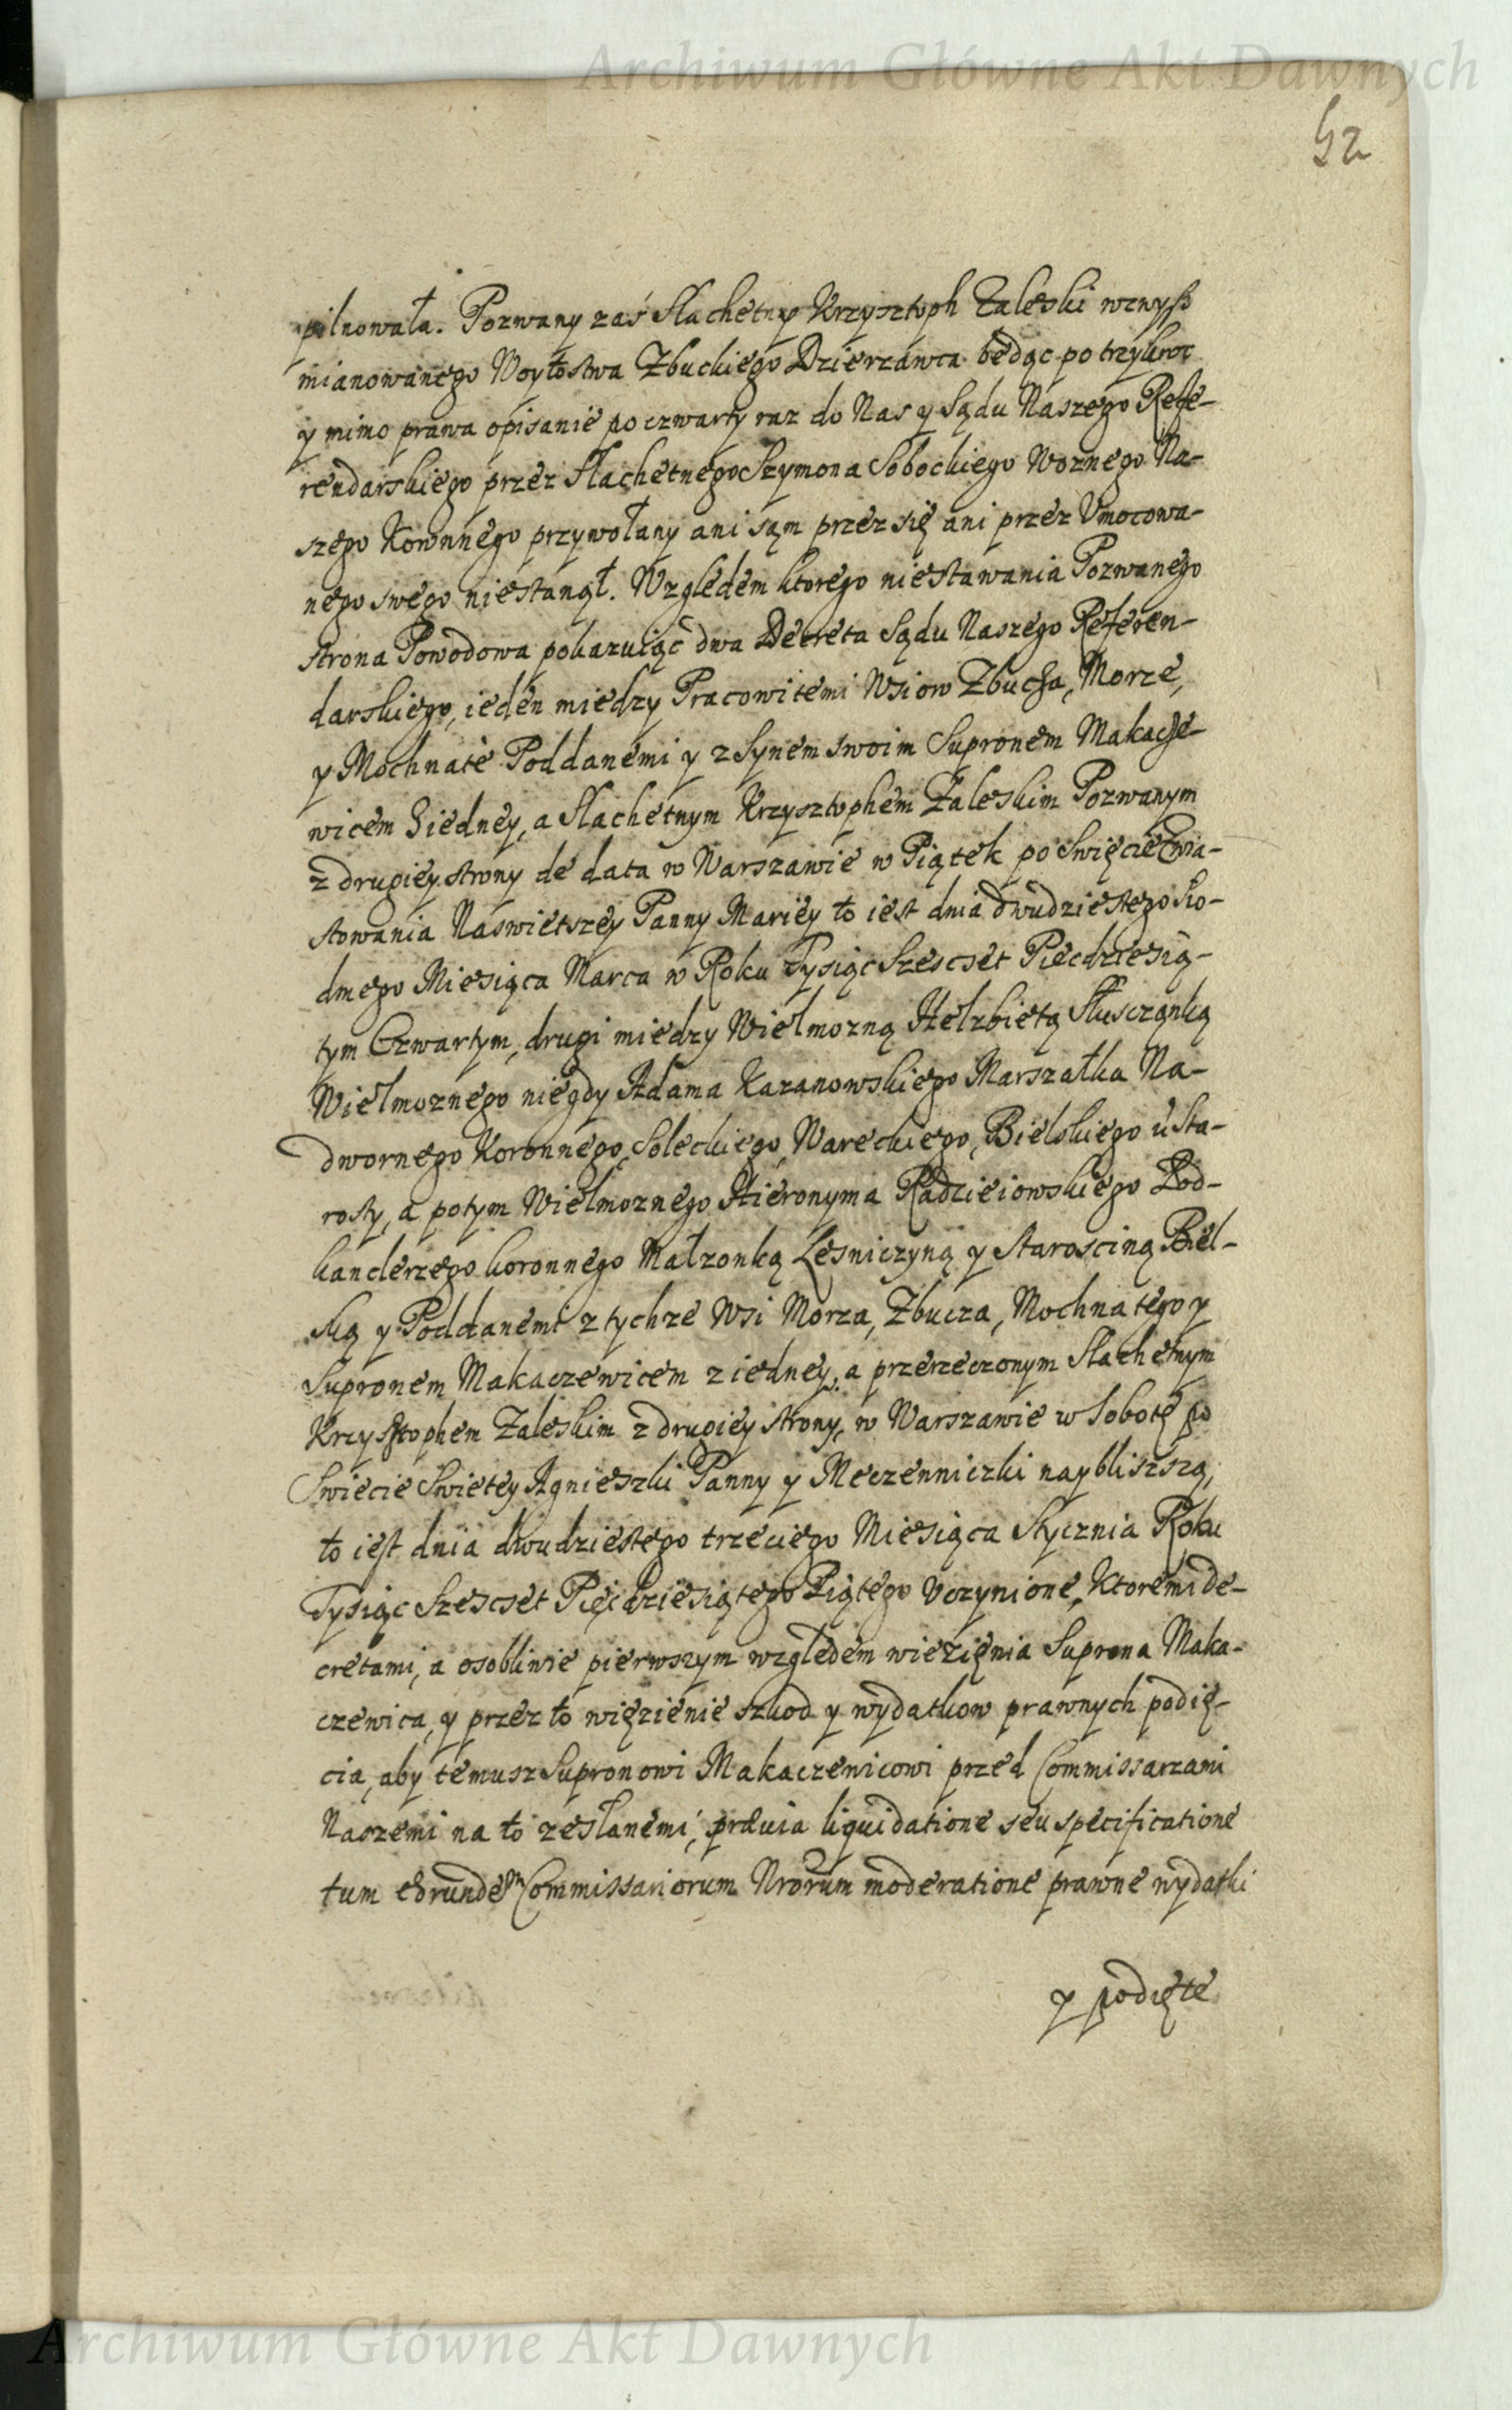 Archiwum Główne Akt Dawnych
52
pilnowała. Pozwany zaś Slachetny Krzysztoph Zaleski wzwysz
mianowanego Woytostwa Zbuckiego Dzierzawca będąc po trzykroc
y mimo prawa opisanie po czwarty raz do Nas y Sądu Naszego Refe-
rendarskiego przez Slachetnego Szymona Sobockiego Woznego Na-
szego Koronnego przywołany ani sąm przez się ani przez Vmocowa-
nego swego niestanął. Względem ktorego niestawania Pozwanego
strona Powodowa pokazuiąc dwa Decreta Sądu Naszego Referen-
darskiego, ieden miedzy Pracowitemi Wsiow Zbucza, Morze,
y Mochnate Poddanemi y z Synem swoim Supronem Makacze-
wicem z iedney, a Slachetnym Krzysztophem Zaleskim Pozwanym
z drugiey strony de data w Warszawie w Piątek po Swięcie Zwia-
stowania Naswietszey Panny Mariey to iest dnia dwudziestego Sio-
dmego Miesiąca Marca w Roku Tysiąc Szescset Piecdziesią-
tym Czwartym, drugi miedzy Wielmozną Helzbietą Sluszcząnką
Wielmoznego niegdy Adama Kazanowskiego Marszałka Na-
dwornego Koronnego, Soleckiego, Wareckiego, Bielskiego &c Sta-
rosty, a potym Wielmoznego Hieronyma Radzieiowskiego Pod-
kanclerzego koronnego Małzonką Lesniczyną y Starosciną Biel-
ską y Poddanemi z tychze Wsi Morza, Zbucza, Mochnatego y
Supronem Makaczewicem z iedney, a przerzeczonym Slachetnym
Krzysztophem Zaleskim z drugiey strony, w Warszawie w Sobotę po
Swiecie Swietey Agnieszki Panny y Meczenniczki naybliszszą,
to iest dnia dwudziestego trzeciego Miesiąca Stycznia Roku
Tysiąc Szescset Pięcdziesiątego Piątego Vczynione, Ktoremi de-
cretami, a osobliwie pierwszym względem wiezięnia Suprona Maka-
czewica, y przez to więzienie szkod y wydatkow prawnych podię-
cia, aby temusz Supronowi Makaczewicowi przed Commissarzami
Naszemi na to zesłanemi, prævia liquidatione seu specificatione
tum eorundem Commissariorum Nrorum moderatione prawne wydatki
y podięte
Archiwum Główne Akt Dawnych